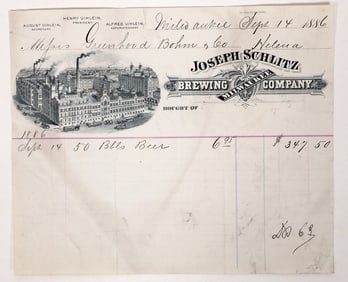 AUGUST UIHLEIN, SECRETARY. HENRY UIHLEIN, PRESIDENT. ALFRED UIHLEIN, SUPERINTENDENT.
Milwaukee Sept 14 1886
Messrs Greenhood Bohm & Co Helena
JOSEPH SCHLITZ
BREWING COMPANY.
MILWAUKEE
BOUGHT OF
1886
Sept. 14 50 Blls Beer 6 95 $ 347 50